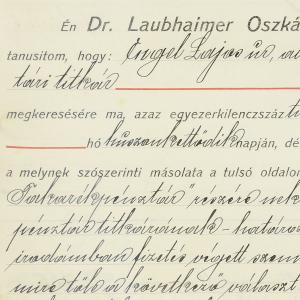 Én Dr. Laubhaimer Oszká
tanusitom, hogy: Engel Lajos úr, a
tári titkár
megkeresésére ma, azaz egyezerkilenczszáz ti
hó huszonkettődik napján, dé
a melynek szószerinti másolata a tulsó oldalon
Takarékpénztár" részére
pénztár titkárának - határo
irodámban fizetés végett szem
mire tőle a következő választ